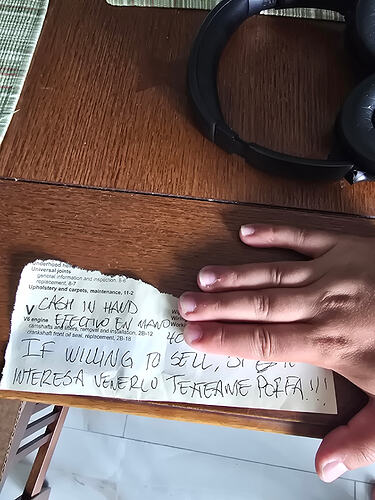 Universal joints
general information and inspection, 8-6
replacement, 8-7
Upholstery and carpets, maintenance, 11-2
V CASH IN HAND
V6 engine EFECTIVO EN MANO
camshafts and lifters, removal and installation, 2B-12
crankshaft front oil seal, replacement, 2B-18
IF WILLING TO SELL,
INTERESA VENERLO TEXTEAME PORFA!!!